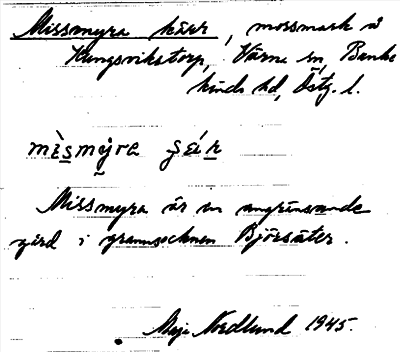 Missmyra kärr, mossmark å
Kungsvikstorp, Värna sn, Banke
kinds hd, Östg. l.
Missmyra är en angränsande
gård i grannsocknen Björsäter.
Maj Nedlund 1945.